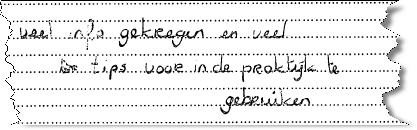 veel info gekregen en veel
tips voor in de praktijk te
gebruiken